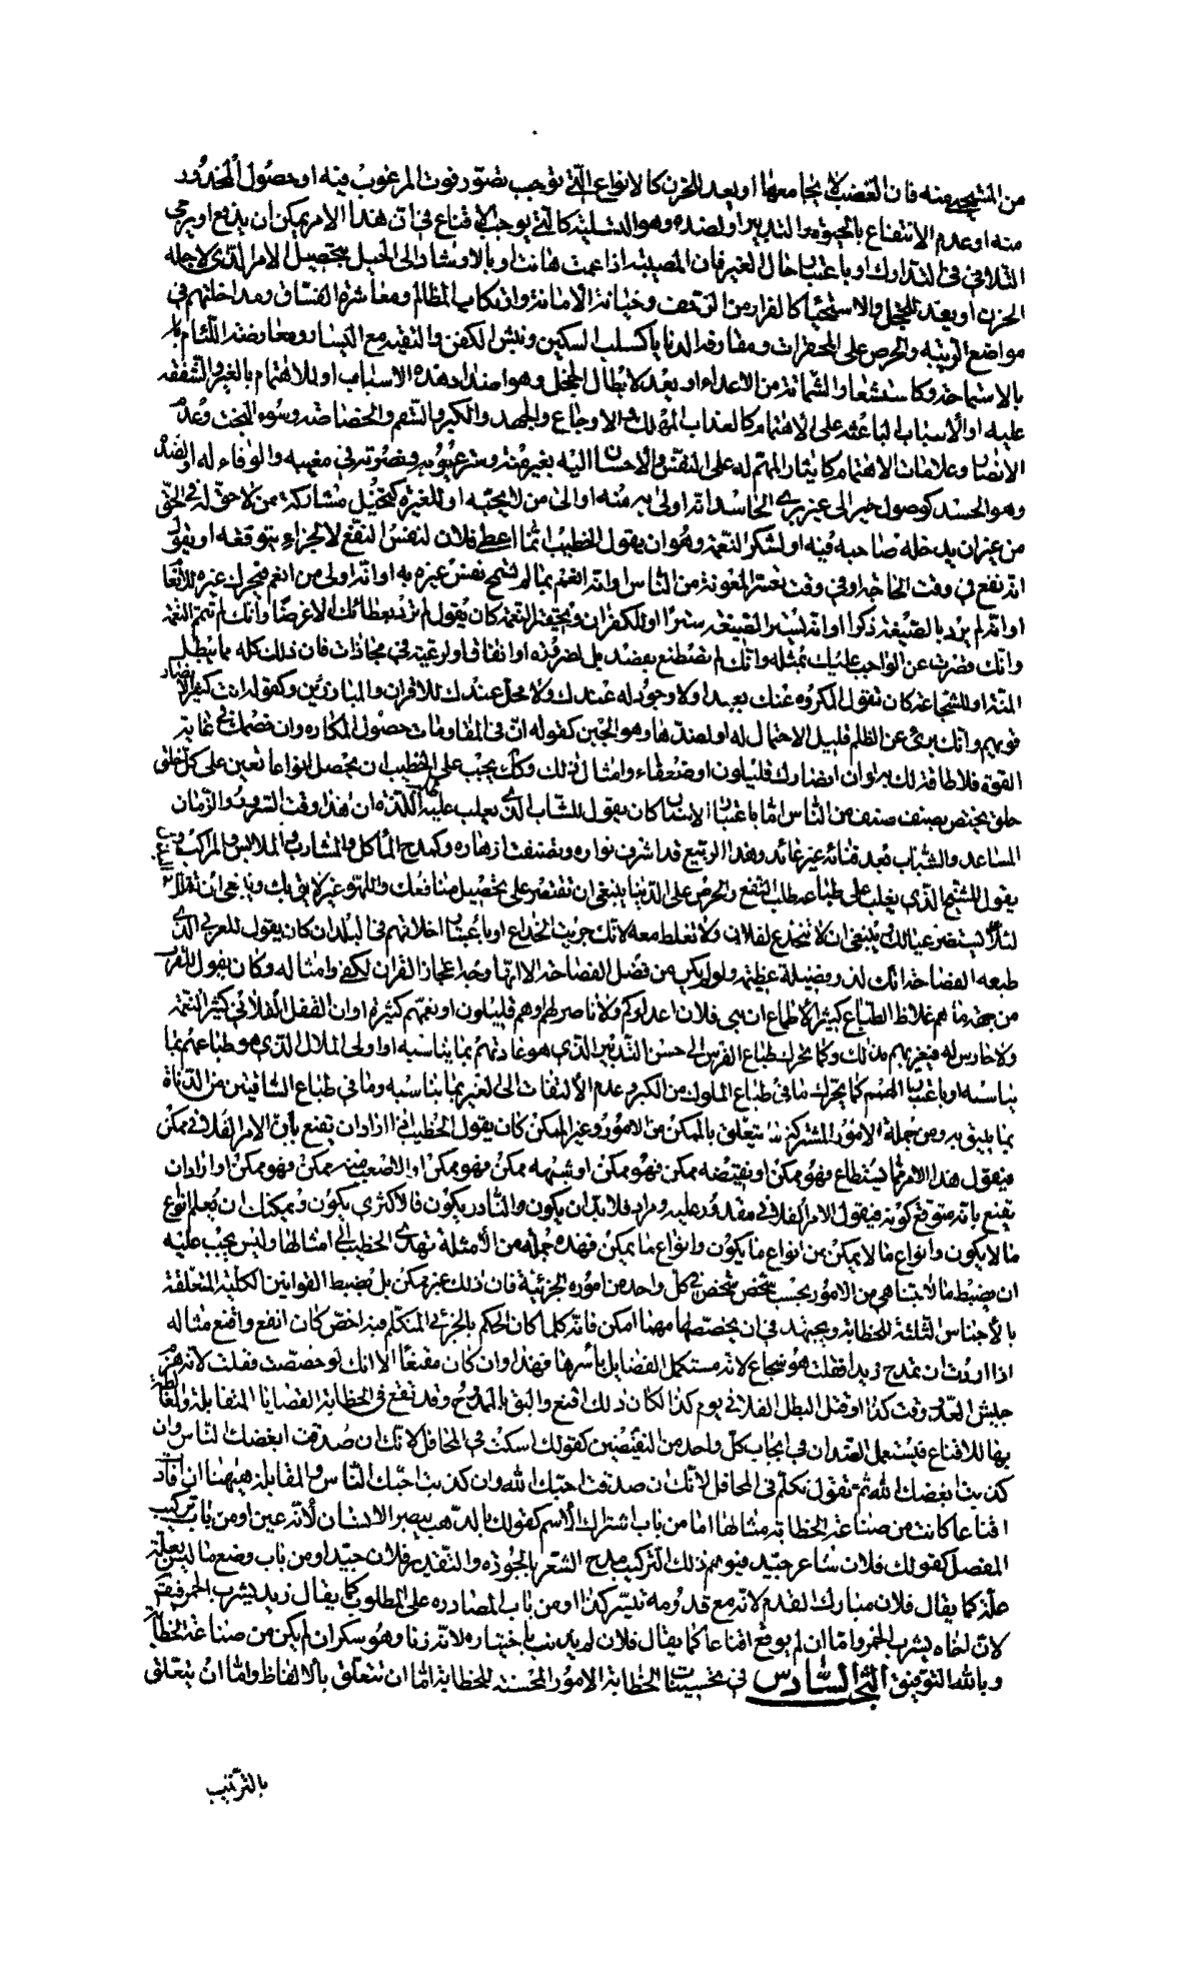 من المستحيى منه فان الغضب لا يجامعها او يعد للحزن كالانواع التى توجب تصور فوت المرغوب فيه او حصول المحذور
منه او عدم الانتفاع بالحيوة والتدبير او لضده وهو التسلية كالتى يوجب الاقناع فى ان هذا الامر يمكن ان يدفع او يرجى
التلافى فى التدارك او باعتبار حال الغير فان المصيبة اذا عمت هانت او بالارشاد الى الحيل بتحصيل الامر الذى لاجله
الحزن او يعد للخجل والاستحيا كالفرار من الزحف وخيانة الامانة وارتكاب المظالم ومعاشرة الفساق ومداخلتهم فى
مواضع الريبه والحرص على المحقرات ومقارفه الدنايا كسلب السكين ونبش الكفن والتقيد مع اليسار ومعارضه اللئام
بالاستماحة وكاستشعار الشماتة من الاعداء او يعد لابطال الخجل وهو اضداد هذه الاسباب او للاهتمام بالغير والشفقه
عليه او الاسباب الباعثه على الاهتمام كالعذاب المهلك والاوجاع والجهد والكبر والسقم والخصاصه وسوء البخت وعدم
الانصار وعلامات الاهتمام كايثار المهتم له على النفس والاحسان اليه بغير منة وستر عيوبه ونصرته فى مغيبه والوفاء له او لضده
وهو الحسد كوصول خير الى غير يرى الحاسد انه اولى به منه او الى من لا يحبه او للغيرة كتخيل مشاركة من لا حق له فى الحق
من غير ان يدخله صاحبه فيه او لشكر النعمة وهو ان يقول الخطيب انما اعطى فلان لنفس النفع لا لجزاء يتوقعه او يقول
انه نفع فى وقت الحاجة او فى وقت تعسر المعونة من الناس او انه انعم بما لم تسمح نفس غيره به او انه اولى من انعم فيحرك غيره للانعام
او انه لم يرد بالصنيعة ذكرا او انه يستر الصنيعة سترا او للكفران وتحقير النعمة كان يقول لم ترد بعطائك الا غرضا وانك لم تتمم النعمه
وانك قصرت عن الواجب عليك بمثله وانك لم تصطنع بقصد بل لضرورة او اتفاق او لرغبة فى مجازات فان ذلك كله مما يبطل
المنة او للشجاعة كان تقول المكروه عنك بعيد او لا وجود له عندك ولا محل عندك للاقران والمبارزين وكقوله انت كثير الانصار
قويهم وانك برئ عن الظلم قليل الاحتمال له او لضدها وهو الجبن كقوله ان فى المقاومات حصول المكاره وان خصمك فى غاية
القوة فلا طاقة لك به وان انصارك قليلون او ضعفاء وامثال ذلك وكذلك يجب على الخطيب ان يحصل انواعا تعين على كل خلق
خلق يختص بصنف صنف من الناس اما باعتبار الاسنان كان يقول للشاب الذى يغلب عليه اللذة ان هذا وقت السرور والزمان
المساعد والشباب بعد فنائه غير عائد وهذا الربيع قد اشرق نواره وتضعفت ازهاره وكمدح المأكل والمشارب والملابس والمراكب وان
يقول للشيخ الذى يغلب على طباعه طلب النفع والحرص على الدنيا ينبغى ان تقتصر على تحصيل منافعك واللهو غير لايق بك وينبغى ان تقلل
لئلا يستضر عيالك وينبغى ان لا تنخدع لفلان ولا تغلط معه لانك جربت الخداع او باعتبار اخلاقهم فى البلدان كان يقول للعربى الذى
طبعه الفصاحة انك لذو فضيلة عظيمة ولو لم يكن من فضل الفصاحة الا انها وجه اعجاز القران لكفى وامثاله وكان يقول للترك
من جهة ما هم غلاظ الطباع كثير الاطماع ان بنى فلان اعداوكم ولا ناصر لهم وهم قليلون او نعمهم كثيرة او ان القفل الفلانى كثير النعمه
ولا حارس له فيغريهم بذلك وكما يحرك طباع الفرس الى حسن التدبير الذى هو عادتهم بما يناسبه او اولى الملال الذى هو طباعهم بما
يناسبه او باعتبار الهمم كما يحرك ما فى طباع الملوك من الكبر وعدم الالتفات الى الغير بما يناسبه وما فى طباع الساقين من الدناءة
بما يليق به ومن جملة الامور المشتركة ما يتعلق بالممكن من الامور وغير الممكن كان يقول الخطيب اذا اراد ان يقنع بان الامر الفلانى ممكن
فيقول هذا الامر مما يستطاع فهو ممكن او نقيضه ممكن فهو ممكن او شبهه ممكن فهو ممكن او الاصعب منه ممكن فهو ممكن او اذا اراد ان
يقنع بانه متوقع كونه فيقول الامر الفلانى مقدور عليه ومراد فلا بد ان يكون والنادر يكون فالاكثرى يكون ويمكنك ان يعلم انواع
ما لا يكون وانواع ما لا يمكن من انواع ما يكون وانواع ما يمكن فهذه جملة من الامثلة تهدى الخطيب الى امثالها وليس يجب عليه
ان يضبط ما لا يتناهى من الامور بحسب شخص شخص فى كل واحد من اموره الجزئية فان ذلك غير ممكن بل يضبط القوانين الكلية المتعلقة
بالاجناس الثلثة للخطابة ويجتهد فى ان يخصصها مهما امكن فانه كلما كان الحكم بالجزئى المتكلم فيه اخص كان انفع واقنع مثاله
اذا اردت ان تمدح زيدا فقلت هو شجاع لانه مستكمل الفضايل باسرها فهذا وان كان مقنعا الا انك لو خصصت فقلت لانه هزم
جيش العدو وقت كذا او قتل البطل الفلانى يوم كذا لكان ذلك اقنع واليق بالمدح وقد تقع فى الخطابة القضايا المتقابلة والمغالطة
بها للاقناع فيستعمل الضدان فى ايجاب كل واحد من النقيضين كقولك اسكت فى المحافل لانك ان صدقت ابغضك الناس وان
كذبت ابغضك الله ثم تقول تكلم فى المحافل لانك ان صدقت احبك الله وان كذبت احبك الناس والمقابلة هيهنا ان افاد
اقناعا كانت من صناعة الخطابة مثالها اما من باب اشتراك الاسم كقولك بالذهب يبصر الانسان لانه عين او من باب تركيب
المفصل كقولك فلان شاعر جيد فيوهم ذلك التركيب مدح الشعر بالجوده والتقدير فلان جيد او من باب وضع ما ليس بعلة
علة كما يقال فلان مبارك القدم لانه مع قدومه تيسر كذا او من باب المصادره على المطلوب كما يقال زيد يشرب الخمر فيقيم
لان اخاه يشرب الخمر واما ان لم يوقع اقناعا كما يقال فلان لم يذنب باختياره لانه زنا وهو سكران لم يكن من صناعة الخطابة
وبالله التوفيق البحث السادس فى تحسينات الخطابة الامور المحسنه للخطابة اما ان تتعلق بالالفاظ واما ان يتعلق
بالترتيب